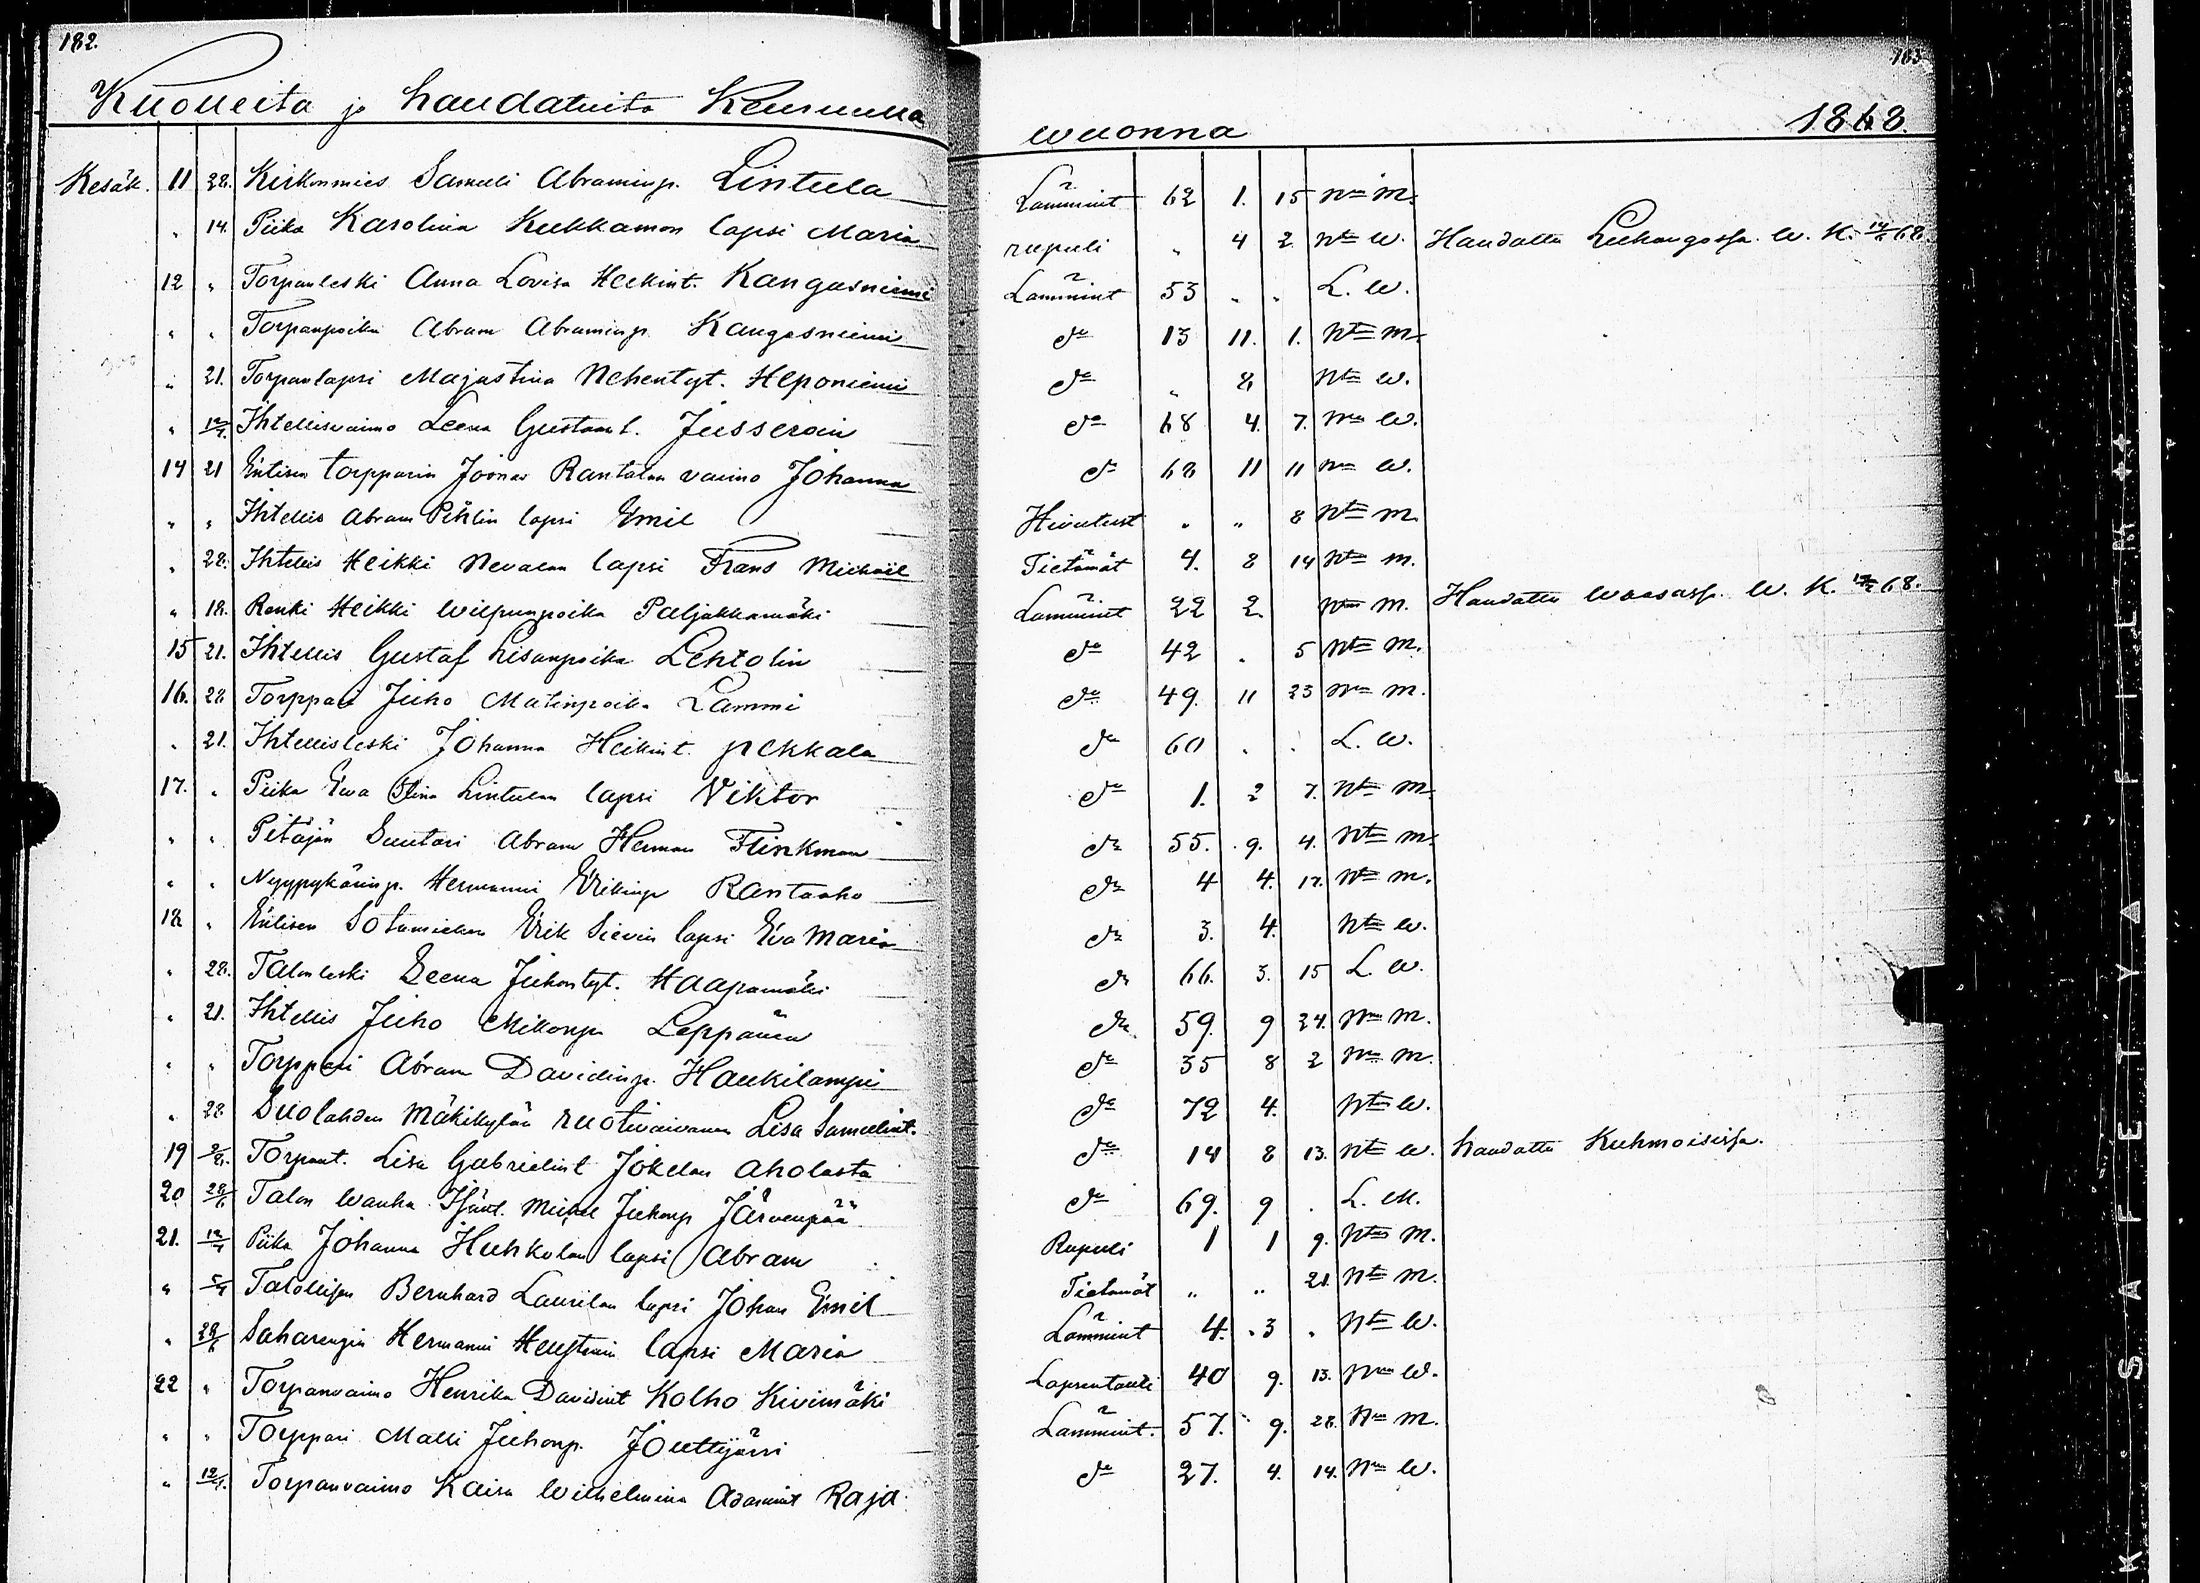 182.
183
Kuolleita ja haudatuita Keuruulla wuonna 1868.
Kesäk. 11 28. Kirkonmies Samuli Abraminp. Lintula Lämmint 62 1. 15 Nn M.
" 14. Piika Karolina Kukkamon lapsi Maria rupuli " 4 2. Ntn W. Haudattu Leehangossa. W. K. 14/6 68.
12 " Torpanleski Anna Lovisa Heikint. Kangasniemi Lämmint 53 " " L. W.
" " Torpanpoika Abram Abraminp. Kangasniemi do 13 11. 1. Ntn M.
" 21. Torpanlapsi Majastina Nehentyt. Heponiemi do " 8 Ntn W.
" 12/7. Ihtellisvaimo Leena Gustaat. Jusseroin do 68 4. 7. Nn W.
14 21 Entisen torpparin Joonas Rantalan vaimo Johanna do 68 11 11 Nn W.
" " Ihtellis Abram Pihlin lapsi Emil Hivutust " " 8 Ntn M.
" 28. Ihtellis Heikki Nevalan lapsi Frans Mikaël Tietämät 4. 8 14 Ntn M.
" 18. Renki Heikki Wilpunpoika Paljakkamäki Lämmint 22 2. Ntn M. Haudattu Waasassa. W. K. 68.
15 21. Ihtellis Gustaf Lisanpoika Lehtolin do 42 . 5 Ntn M.
16. 28 Torppari Juho Matinpoika Lammi do 49. 11 23 Nn M.
" 21. Ihtellisleski Johanna Heikint. Pekkala do 60 . . L. W.
17. " Piika Ewa Stina Lintulan lapsi Viktor do 1. 2 7. Ntn M.
" " Pitäjän Suutari Abram Herman Flinkman do 55. 9. 4. Ntn M.
" " Nyyppykäninp. Hermanni Erikinp Rantaaho do 4 4. 17. Ntn M.
18 " Entisen Sotamiehen Erik Sievin lapsi Eva Maria do 3. 4. Ntn W.
" 28. Talonleski Leena Juhontyt. Haapamäki do 66. 3. 15 L. W.
" 21. Ihtellis Juho Mikonp. Leppänen do 59. 9 24. Nn M.
" " Torppari Abram Davidinp. Haukilampi do 35 8 2 Nn M.
" 28 Suolahden Mäkikylän ruotivaivanen Lisa Samulint. do 72 4. Ntn W.
19 Torpant. Lisa Gabrielint Jokelan Aholasta do 14 8 13. Ntn W. haudattu Kuhmoisissa.
20. 28/6 Talon Wanha Isänt. Mickel Juhonp Järvenpää do 69. 9 . L. M.
21. 12/7 Piika Johanna Huhkolan lapsi Abram Rupuli 1 1 9. Ntn M.
" 5/7 Talollisen Bernhard Laurilan lapsi Johan Emil Tietämät " " 21. Ntn M.
" 28/6 Saharengin Hermanni Heustenin lapsi Maria Lämmint 4. 3 . Ntn W.
22 " Torpanvaimo Henrika Davidint Kolho Kivimäki Lapsentauti 40 9. 13. Nn W.
" " Torppari Matti Juhonp. Jouttijärvi Lämmint. 57. 9. 28. Nn M.
" 12/7. Torpanvaimo Kaisa Wilhelmina Adamint Raja do 27. 4. 14. Nn W.
K SAFETY FILM